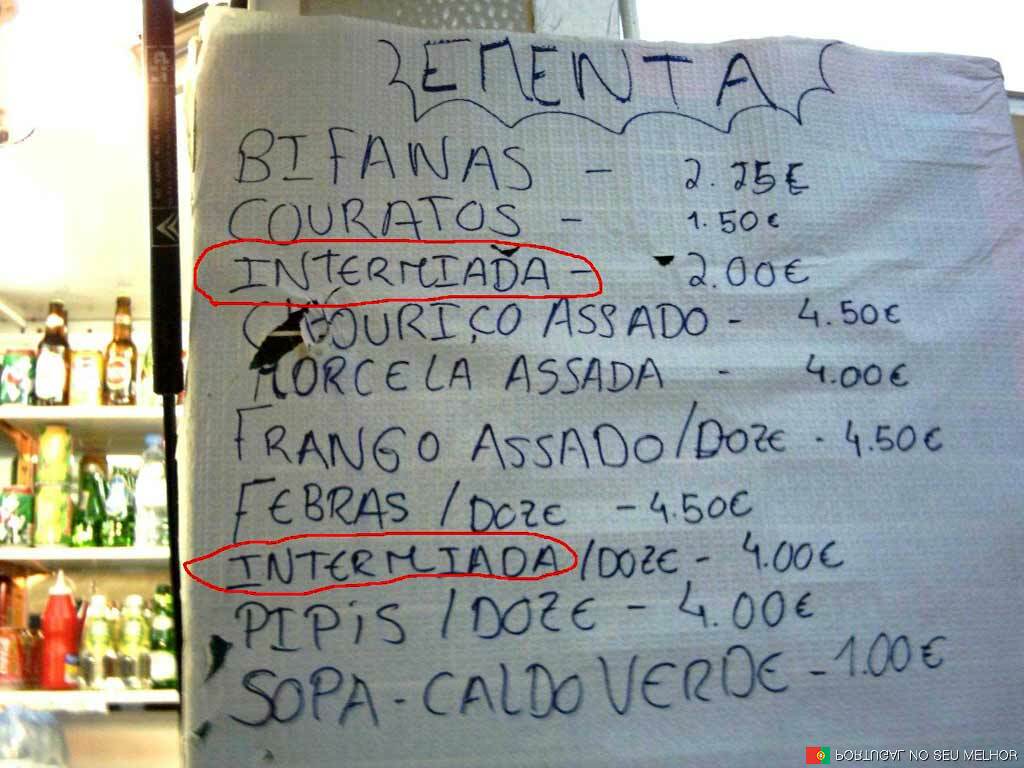 EMENTA
BIFANAS - 2.25€
COURATOS - 1.50€
INTERMIADA - 2.00€
CHOURIÇO ASSADO - 4.50€
MORCELA ASSADA - 4.00€
FRANGO ASSADO/DOZE - 4.50€
FEBRAS /DOZE - 4.50€
INTERMIADA/DOZE - 4.00€
PIPIS /DOZE - 4.00€
SOPA - CALDO VERDE - 1.00€
PORTUGAL NO SEU MELHOR